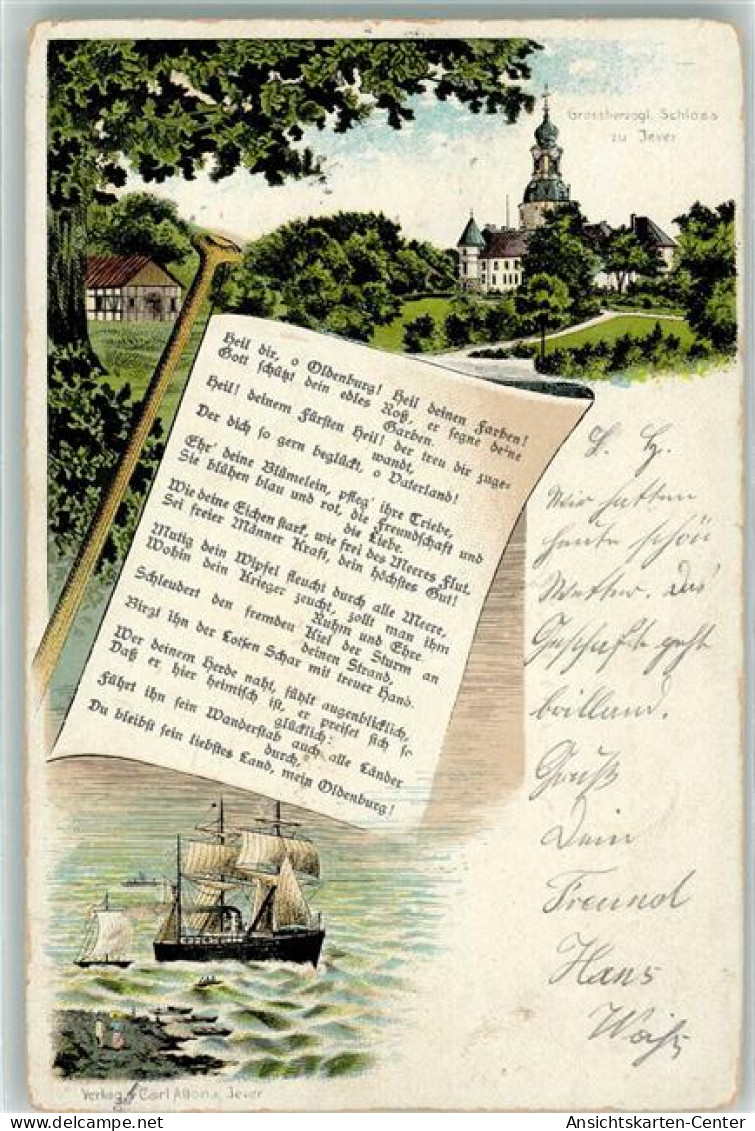 Grossherzogl. Schloss
zu Jever
Heil dir, o Oldenburg! Heil deinen Farben!
Gott schützt dein edles Roß, er segne deine
Garben.
Heil! deinem Fürsten Heil! der treu dir zuge-
wandt,
Der dich so gern beglückt, o Vaterland!
Ehr' deine Blümelein, pfleg' ihre Triebe,
Sie blühen blau und rot, die Freundschaft und
die Liebe.
Wie deine Eichen stark, wie frei des Meeres Flut,
Sei freier Männer Kraft, dein höchstes Gut!
Mutig dein Wipfel fleucht durch alle Meere,
Wohin dein Krieger zeucht, zollt man ihm
Ruhm und Ehre.
Schleudert den fremden Kiel der Sturm an
deinen Strand,
Birgt ihn der Lotsen Schar mit treuer Hand.
Wer deinem Herde naht, fühlt augenblicklich,
Daß er hier heimisch ist, er preiset sich so
glücklich:
Führt ihn sein Wanderstab auch alle Länder
durch,
Du bleibst sein liebstes Land, mein Oldenburg!
L. H.
Wir hatten
heute schön
Wetter. Das
Geschäft geht
brilland.
Gruß
Dein
Freund
Hans
Verlag Carl Altona, Jever
Ansichtskarten-Center